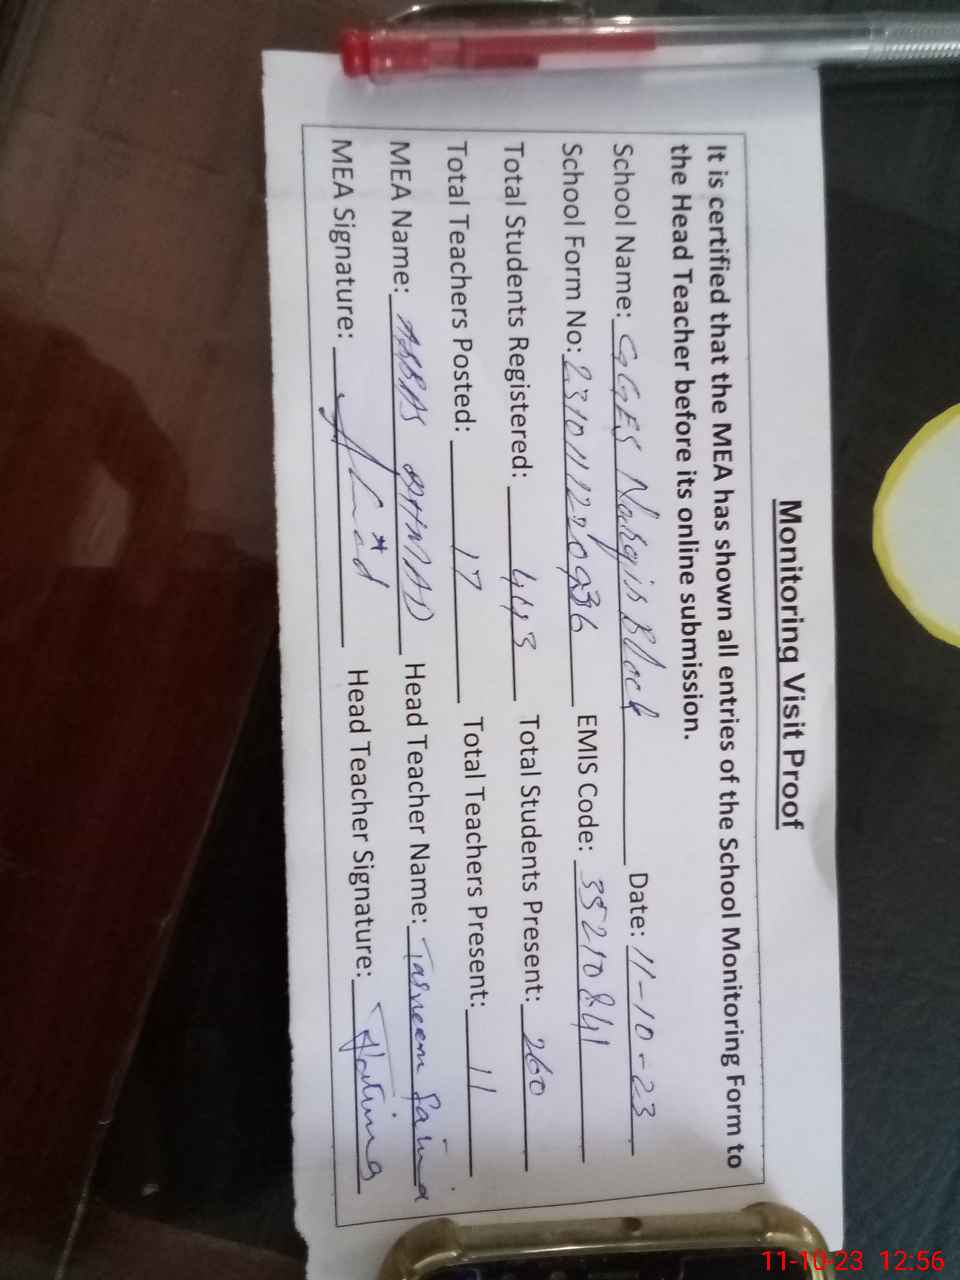 Monitoring Visit Proof
It is certified that the MEA has shown all entries of the School Monitoring Form to
the Head Teacher before its online submission.
School Name: GGES Nargis Block Date: 11-10-23
School Form No: 231011220936 EMIS Code: 35210841
Total Students Registered: 443 Total Students Present: 260
Total Teachers Posted: 17 Total Teachers Present: 11
MEA Name: ABBAS AHMAD Head Teacher Name: Tasneem Fatima
MEA Signature: Head Teacher Signature: Fatima
11-10-23 12:56